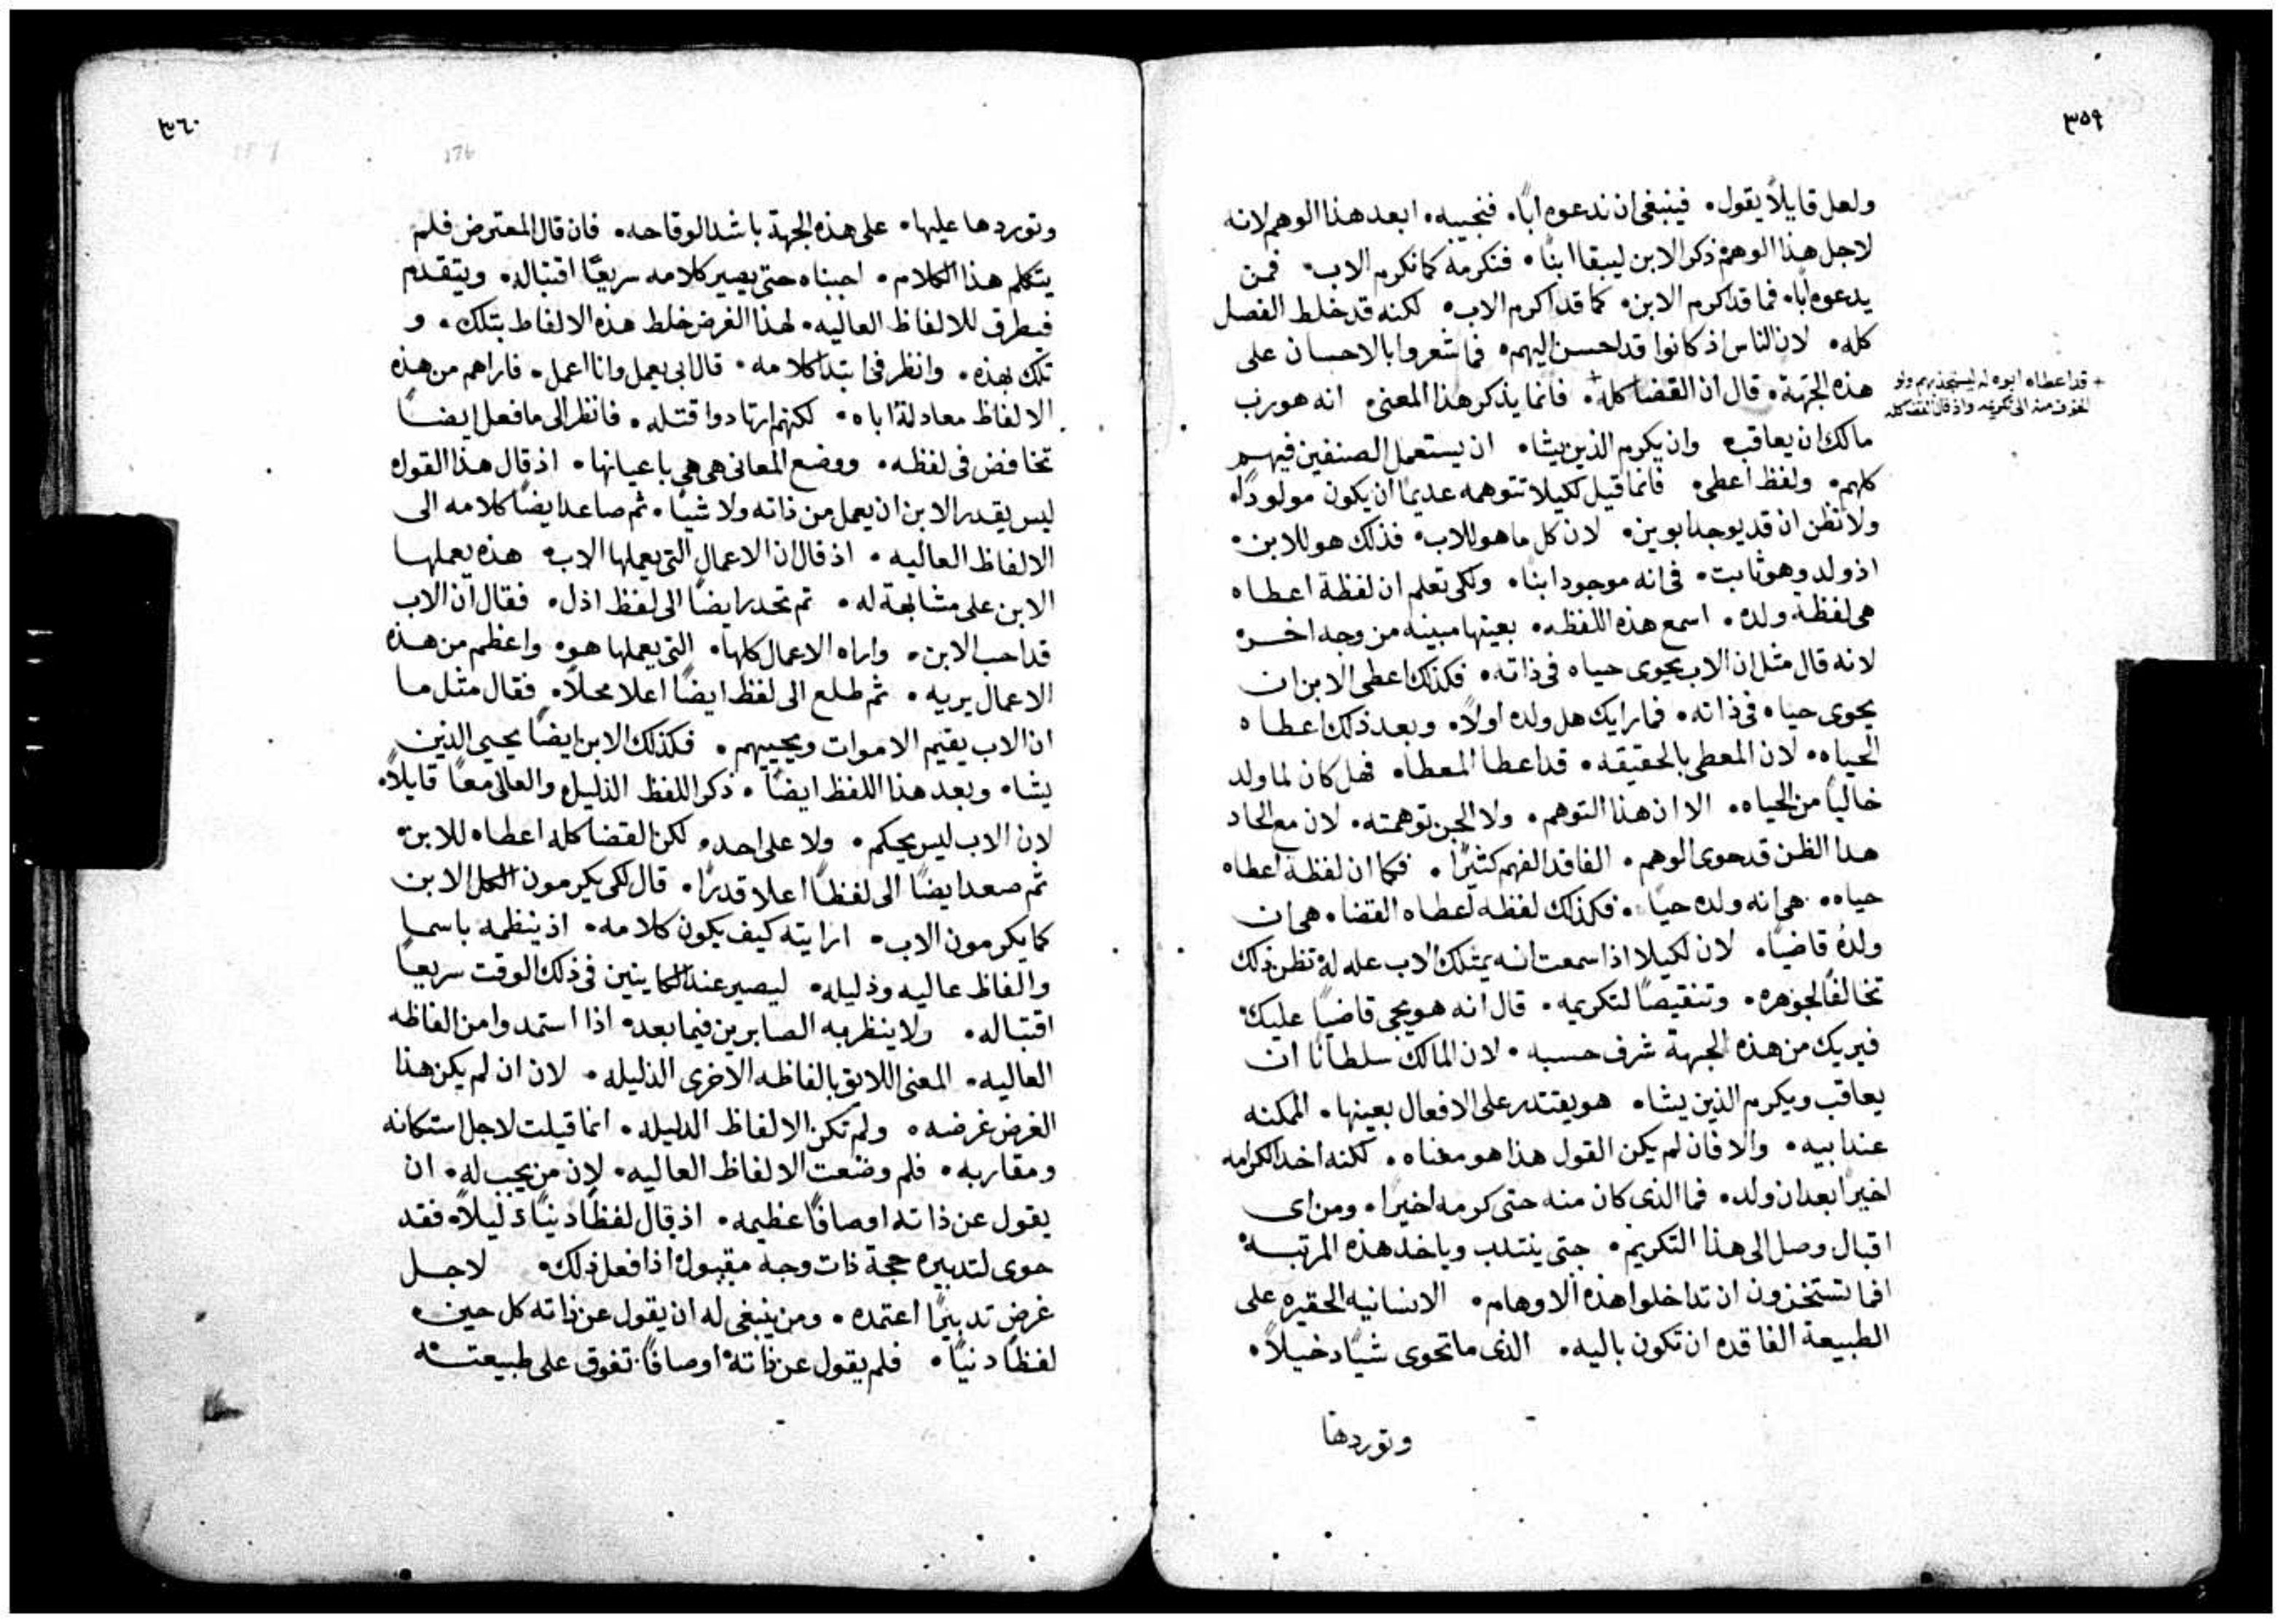 ٣٥٩
ولعل قايلاً يقول. فينبغي ان ندعوه اباً. فنجيبه. ابعد هذا الوهم لانه
لاجل هذا الوهم ذكر الابن ليبقا ابناً. فنكرمه كما نكرم الاب. فمن
يدعوه اباً. فما قد اكرم الابن. كما قد اكرم الاب. لكنه قد خلط الفصل
كله. لان الناس اذ كانوا قد احسن اليهم. فما شعروا بالاحسان على
هذه الجهة. قال ان القضا كله + فانما يذكر هذا المعنى. انه هو رب
+ قد اعطاه ابوه له ليستجذبهم ولو
لخوف منه الى تكريمه واذ قال القضا كله
مالك ان يعاقب. وان يكرم الذين يشاء. ان يستعمل الصنفين فيهم
كلهم. ولفظ اعطى. فانما قيل لكيلا تتوهمه عديماً ان يكون مولوداً.
ولا تظن ان قد يوجد ابوين. لان كل ما هو للاب. فذلك هو للابن.
اذ ولد وهو ثابت. في انه موجود ابناً. ولكي تعلم ان لفظة اعطاه
هي لفظة ولده. اسمع هذه اللفظه. بعينها مبينه من وجه اخر.
لانه قال مثل ان الاب يحوي حياه في ذاته. فكذلك اعطى الابن ان
يحوي حياه في ذاته. فما رايك هل ولده اولاً. وبعد ذلك اعطاه
الحياه. لان المعطي بالحقيقه. قد اعطا المعطا. فهل كان لما ولد
خالياً من الحياه. الا ان هذا التوهم. ولا الجن توهمته. لان مع الحاد
هذا الظن قد حوى الوهم. الفاقد الفهم كثيراً. فكما ان لفظة اعطاه
حياه. هي انه ولده حياً. فكذلك لفظه اعطاه القضا. هي ان
ولده قاضياً. لان لكيلا اذا سمعت انه يمتلك الاب عله له تظن ذلك
تخالفاً لجوهره. وتنقيصاً لتكريمه. قال انه هو يجي قاضياً عليك
فيريك من هذه الجهة شرف حسبه. لان المالك سلطاناً ان
يعاقب ويكرم الذين يشاء. هو يقتدر على الافعال بعينها. الممكنه
عند ابيه. والا فان لم يكن القول هذا هو معناه. لكنه اخذ الكرامه
اخيراً بعد ان ولد. فما الذي كان منه حتى كرمه اخيراً. ومن اي
اقبال وصل الى هذا التكريم. حتى ينتدب وياخذ هذه المرتبه
افما تستخزون ان تداخلوا هذه الاوهام. الانسانيه الحقيره على
الطبيعة الفاقده ان تكون باليه. الذي ما تحوي شياً دخيلاً.
وتوردها
٣٦٠
276
وتوردها عليها. على هذه الجهة باشد الوقاحه. فان قال المعترض فلم
يتكلم هذا الكلام. اجبناه حتى يصير كلامه سريعاً اقتباله. ويتقدم
فيطرق للالفاظ العاليه. لهذا الغرض خلط هذه الالفاظ بتلك. و
تلك بهذه. وانظر في ابتدا كلامه. قال ابي يعمل وانا اعمل. فاراهم من هذه
الالفاظ معادلةً اباه. لكنهم ارتادوا قتله. فانظر الى ما فعل ايضاً
تخافض في لفظه. ووضع المعاني هي هي باعيانها. اذ قال هذا القول
ليس يقدر الابن ان يعمل من ذاته ولا شياً. ثم صاعد ايضاً كلامه الى
الالفاظ العاليه. اذ قال ان الاعمال التي يعملها الاب. هذه يعملها
الابن على مشابهة له. ثم تحدر ايضاً الى لفظ اذل. فقال ان الاب
قد احب الابن. واراه الاعمال كلها. التي يعملها هو. واعظم من هذه
الاعمال يريه. ثم طلع الى لفظ ايضاً اعلا محلاً. فقال مثل ما
ان الاب يقيم الاموات ويحييهم. فكذلك الابن ايضاً يحيي الذين
يشاء. وبعد هذا اللفظ ايضاً. ذكر اللفظ الذليل والعالي معاً قايلاً.
لان الاب ليس يحكم. ولا على احد. لكن القضا كله اعطاه للابن.
ثم صعد ايضاً الى لفظاً اعلا قدراً. قال لكي يكرمون الكل الابن
كما يكرمون الاب. ارايته كيف يكون كلامه. اذ ينظمه باسما
والفاظ عاليه وذليله. ليصير عند الكاينين في ذلك الوقت سريعاً
اقتباله. ولا ينظر به الصابرين فيما بعد. اذا استمدوا من الفاظه
العاليه. المعنى اللايق بالفاظه الاخرى الذليله. لان ان لم يكن هذا
الغرض غرضه. ولم تكن الالفاظ الذليله. انما قيلت لاجل استكانه
ومقاربه. فلم وضعت الالفاظ العاليه. لان من يجب له. ان
يقول عن ذاته اوصافاً عظيمه. اذ قال لفظاً دنياً ذليلاً. فقد
حوى لتدبيره حجة ذات وجه مقبول اذا فعل ذلك. لاجل
غرض تدبيراً اعتمده. ومن ينبغي له ان يقول عن ذاته كل حين.
لفظاً دنياً. فلم يقول عن ذاته اوصافاً تفوق على طبيعته